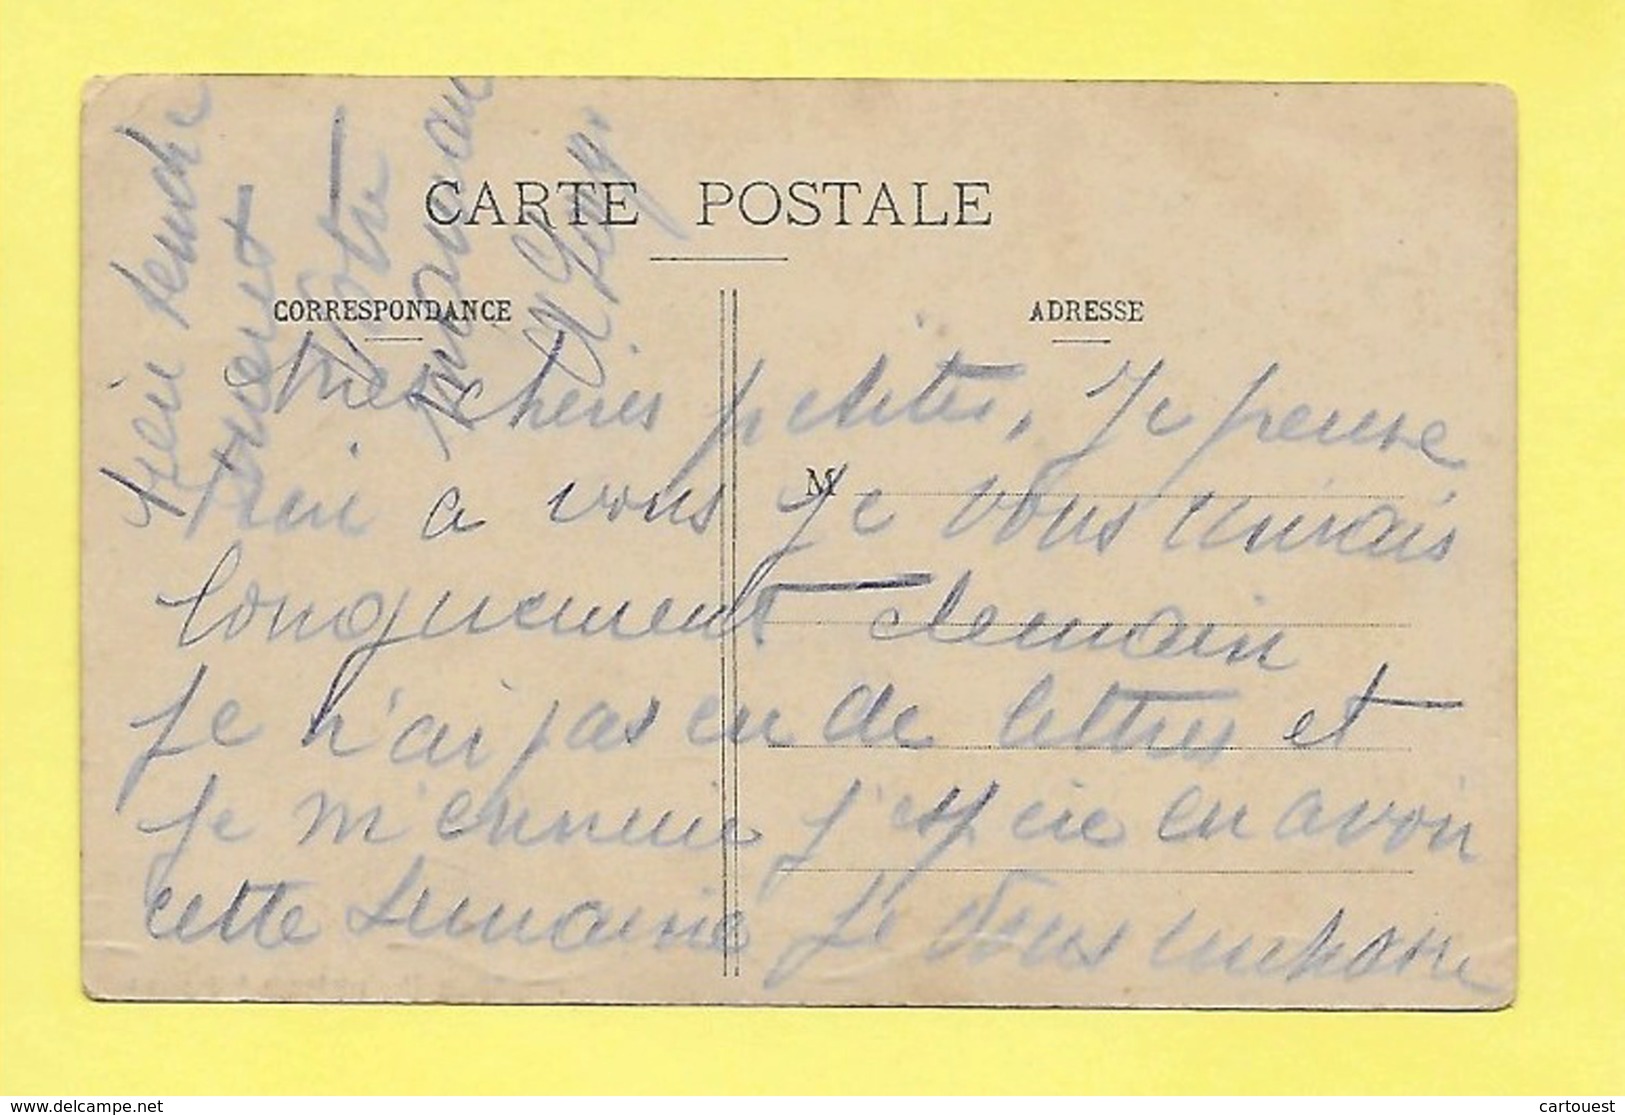 CARTE POSTALE
CORRESPONDANCE
ADRESSE
M
Mes chéries petites, Je pense
bien a vous Je vous écrirais
longuement demain
Je n'ai pas eu de lettres et
Je m'ennuie j'espère en avoir
cette semaine Je vous embrasse
bien tendre
ment
Votre
maman
cartouest